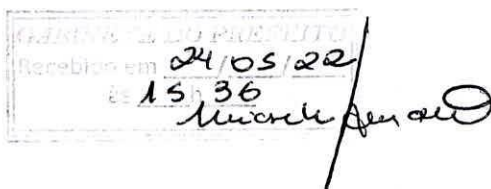 GABINETE DO PREFEITO
Recebido em 24/05/22
às 15 h 36